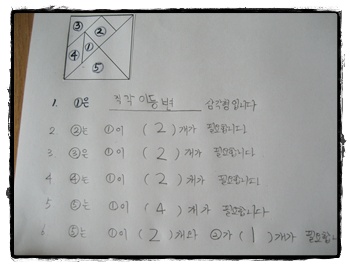 ③ ② ① ④ ⑤
1. ①은 직각 이등변 삼각형입니다
2 ②는 ①이 ( 2 )개가 필요합니다.
3 ③은 ①이 ( 2 )개가 필요합니다.
4 ④는 ①이 ( 2 )개가 필요합니다.
5 ⑤는 ①이 ( 4 )개가 필요합니다.
6 ⑤는 ①이 ( 2 )개와 ②가 ( 1 )개가 필요합니